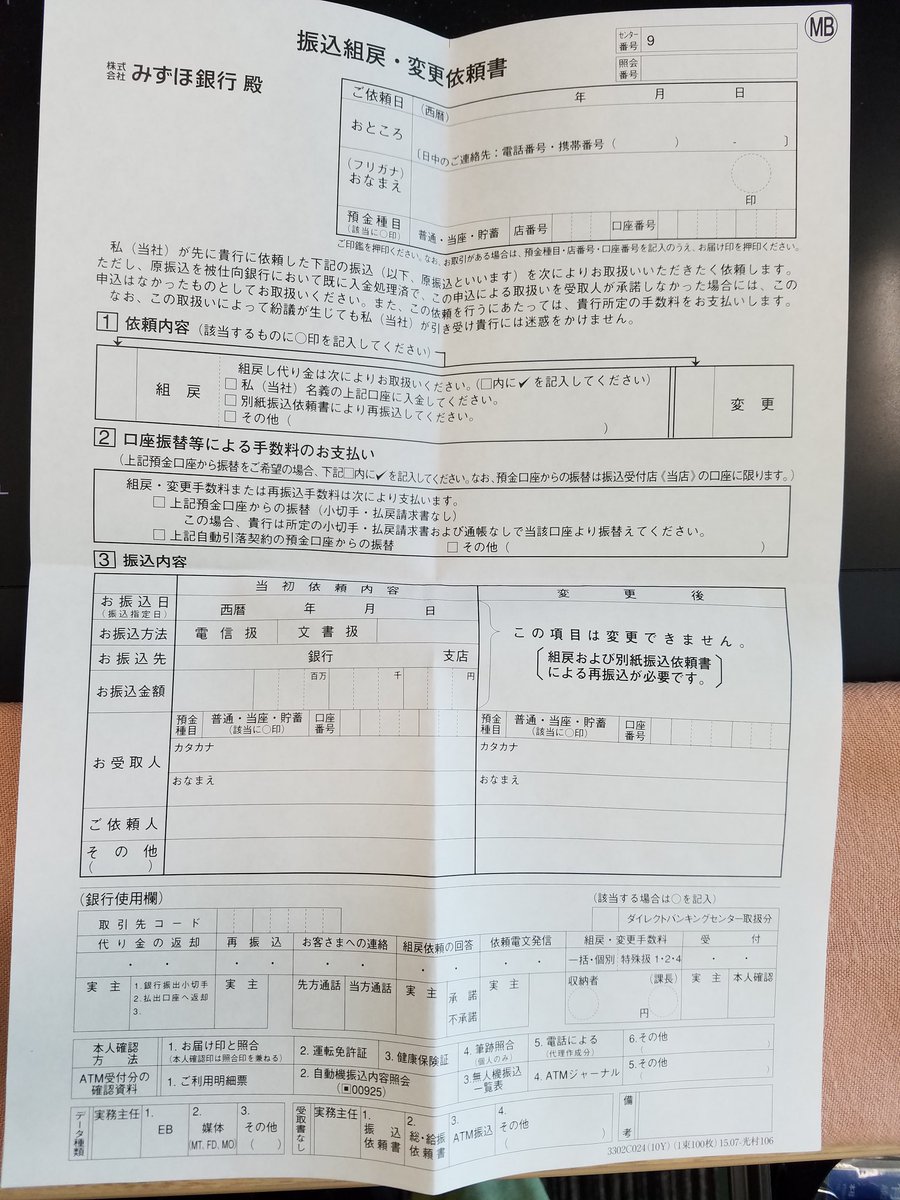 MB
振込組戻・変更依頼書
センター番号 9
照会番号
株式会社 みずほ銀行 殿
ご依頼日 (西暦) 年 月 日
おところ
(日中のご連絡先：電話番号・携帯番号( ) - )
(フリガナ)
おなまえ
印
預金種目 (該当に○印) 普通・当座・貯蓄 店番号 口座番号
ご印鑑を押印ください。なお、お取引がある場合は、預金種目・店番号・口座番号を記入のうえ、お届け印を押印ください。
私(当社)が先に貴行に依頼した下記の振込(以下、原振込といいます)を次によりお取扱いいただきたく依頼します。
ただし、原振込を被仕向銀行において既に入金処理済で、この申込による取扱いを受取人が承諾しなかった場合には、この
申込はなかったものとしてお取扱いください。また、この依頼を行うにあたっては、貴行所定の手数料をお支払いします。
なお、この取扱いによって紛議が生じても私(当社)が引き受け貴行には迷惑をかけません。
1 依頼内容 (該当するものに○印を記入してください)
組戻
組戻し代り金は次によりお取扱いください。(□内に✓を記入してください)
□ 私(当社)名義の上記口座に入金してください。
□ 別紙振込依頼書により再振込してください。
□ その他( )
変更
2 口座振替等による手数料のお支払い
(上記預金口座から振替をご希望の場合、下記□内に✓を記入してください。なお、預金口座からの振替は振込受付店《当店》の口座に限ります。)
組戻・変更手数料または再振込手数料は次により支払います。
□ 上記預金口座からの振替(小切手・払戻請求書なし)
この場合、貴行は所定の小切手・払戻請求書および通帳なしで当該口座より振替えてください。
□ 上記自動引落契約の預金口座からの振替 □ その他( )
3 振込内容
当初依頼内容 変更後
お振込日 (振込指定日) 西暦 年 月 日
お振込方法 電信扱 文書扱
お振込先 銀行 支店
お振込金額 百万 千 円
この項目は変更できません。
組戻および別紙振込依頼書
による再振込が必要です。
お受取人
預金種目 普通・当座・貯蓄 (該当に○印) 口座番号
預金種目 普通・当座・貯蓄 (該当に○印) 口座番号
カタカナ カタカナ
おなまえ おなまえ
ご依頼人
その他
( )
(銀行使用欄) (該当する場合は○を記入)
取引先コード ダイレクトバンキングセンター取扱分
代り金の返却 再振込 お客さまへの連絡 組戻依頼の回答 依頼電文発信 組戻・変更手数料 受付
・ ・ ・ ・ ・ ・ ・ ・ ・ ・ 一括・個別 特殊扱 1・2・4 ・ ・
実主 1. 銀行振出小切手 2. 払出口座へ返却 3. 実主 先方通話 当方通話 実主 承諾 不承諾 実主 収納者 (課長) 円 実主 本人確認
本人確認方法 1. お届け印と照合 (本人確認印は照合印を兼ねる) 2. 運転免許証 3. 健康保険証 4. 筆跡照合 (個人のみ) 5. 電話による (代理作成分) 6. その他 ( )
ATM受付分の確認資料 1. ご利用明細票 2. 自動機振込内容照会 (▣00925) 3. 無人機振込一覧表 4. ATMジャーナル 5. その他 ( )
データ種類 実務主任 1. EB 2. 媒体 (MT, FD, MO) 3. その他 ( ) 受取書なし 実務主任 1. 振込依頼書 2. 総・給振依頼書 3. ATM振込 4. その他 ( ) 備考
3302C024 (10Y) (1束100枚) 15.07-光村106